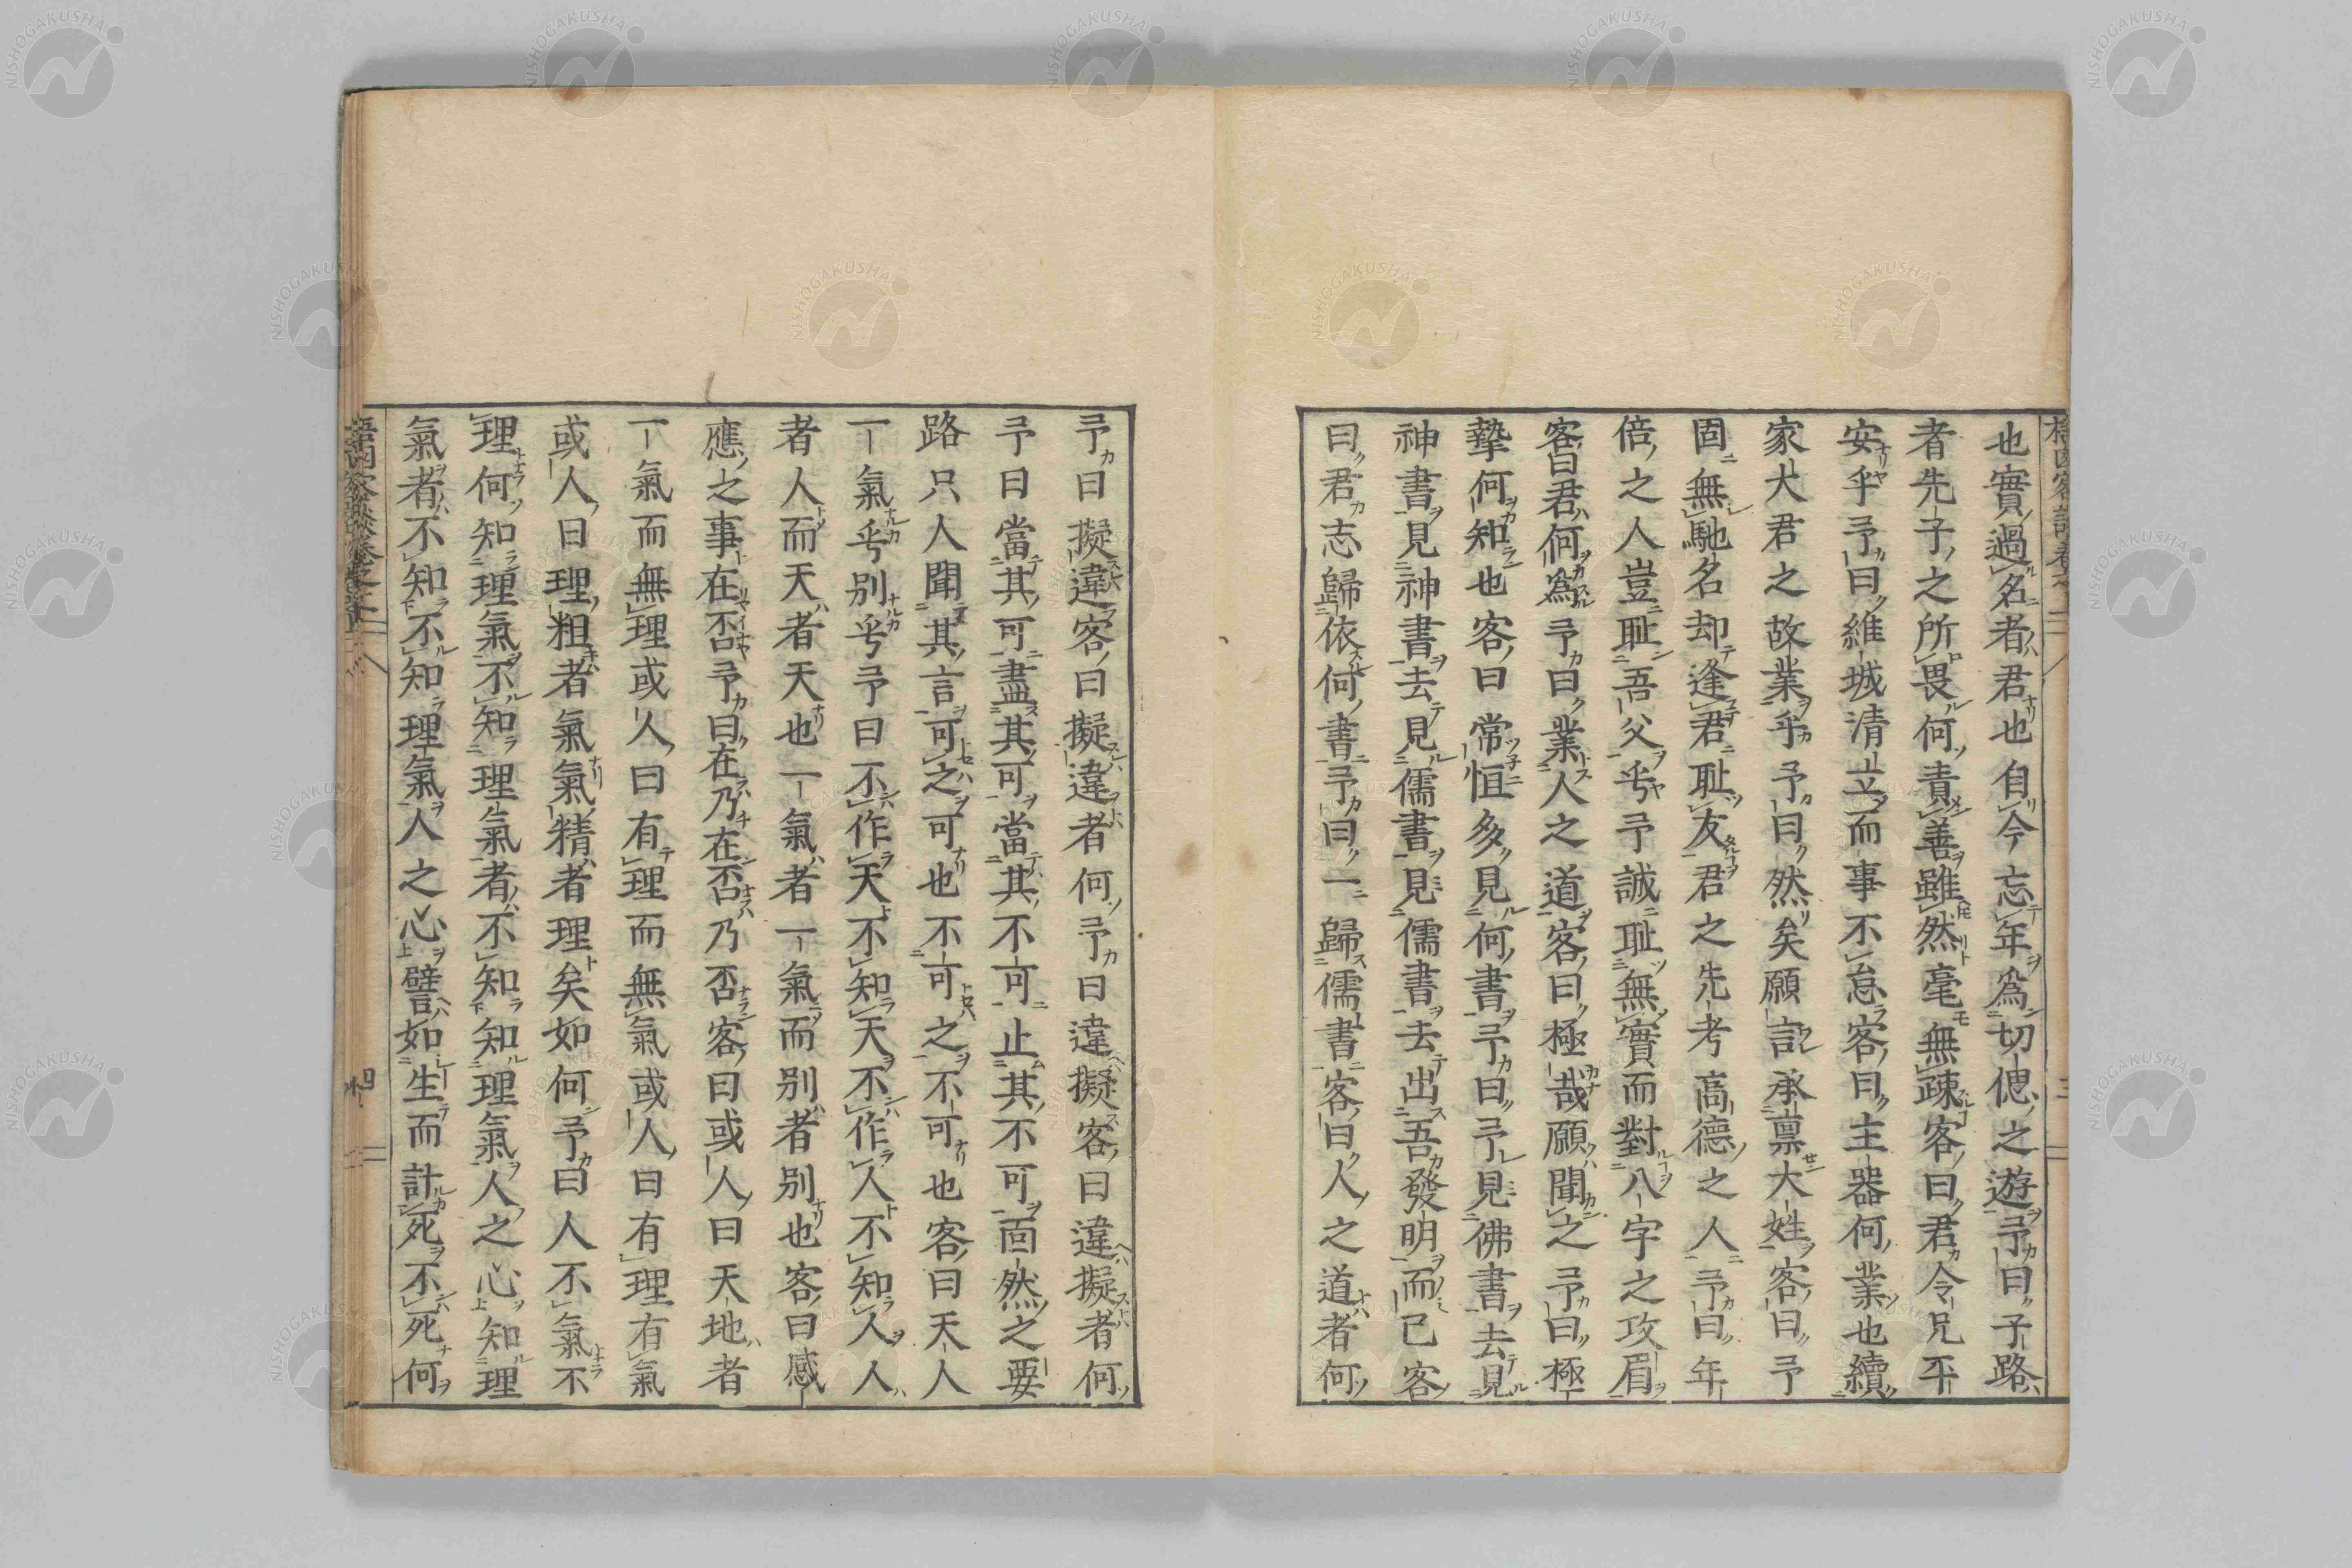 也實過名者君也自今忘年爲切偲之遊予曰子路
者先子之所畏何責善雖然毫無疎客曰君令兄平
安乎予曰維城清立而事不怠客曰主器何業也續
家大君之故業乎予曰然矣願言承稟大姓客曰予
固無馳名却逢君耻友君之先考高德之人予曰年
倍之人豈耻吾父乎予誠耻無實而對八字之攻眉
客曰君何爲予曰業人之道客曰極哉願聞之予曰極
摯何知也客曰常恒多見何書予曰予見佛書去見
神書見神書去見儒書見儒書去出吾發明而已客
曰君志歸依何書予曰一歸儒書客曰人之道者何
予曰擬違客曰擬違者何予曰違擬客曰違擬者何
予曰當其可盡其可當其不可止其不可固然之要
路只人聞其言可之可也不可之不可也客曰天人
一氣乎別乎予曰不作天不知天不作人不知人人
者人而天者天也一氣者一氣而別者別也客曰感
應之事在否予曰在乃在否乃否客曰或人曰天地者
一氣而無理或人曰有理而無氣或人曰有理有氣
或人曰理粗者氣氣精者理矣如何予曰人不氣不
理何知理氣不知理氣者不知知理氣人之心知理
氣者不知不知理氣人之心譬如生而計死不死何
三
四
NISHOGAKUSHA